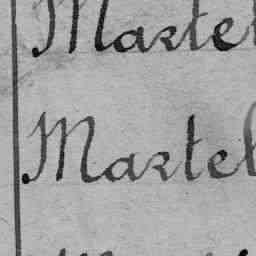 Martel
Martel